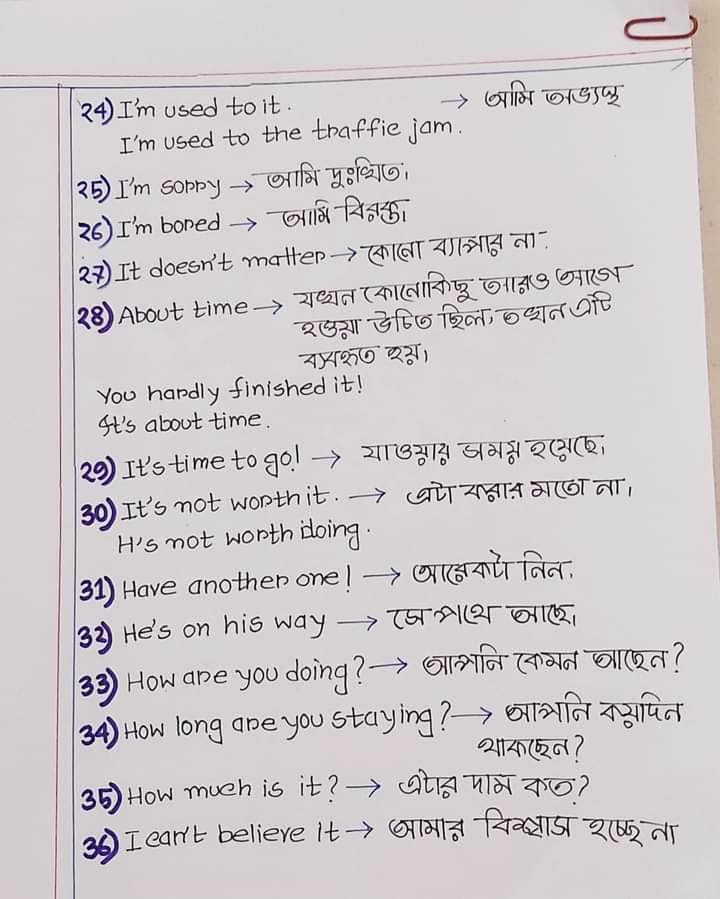 24) I'm used to it. → আমি অভ্যস্থ
I'm used to the traffic jam.
25) I'm sorry → আমি দুঃখিত।
26) I'm bored → আমি বিরক্ত।
27) It doesn't matter → কোনো ব্যাপার না.
28) About time → যখন কোনোকিছু আরও আগে
হওয়া উচিত ছিল, তখন এটি
ব্যবহৃত হয়।
You hardly finished it!
It's about time.
29) It's time to go! → যাওয়ার সময় হয়েছে।
30) It's not worth it. → এটা করার মতো না।
It's not worth doing.
31) Have another one! → আরেকটা নিন.
32) He's on his way → সে পথে আছে।
33) How are you doing? → আপনি কেমন আছেন?
34) How long are you staying? → আপনি কয়দিন
থাকছেন?
35) How much is it? → এটার দাম কত?
36) I can't believe it → আমার বিশ্বাস হচ্ছে না